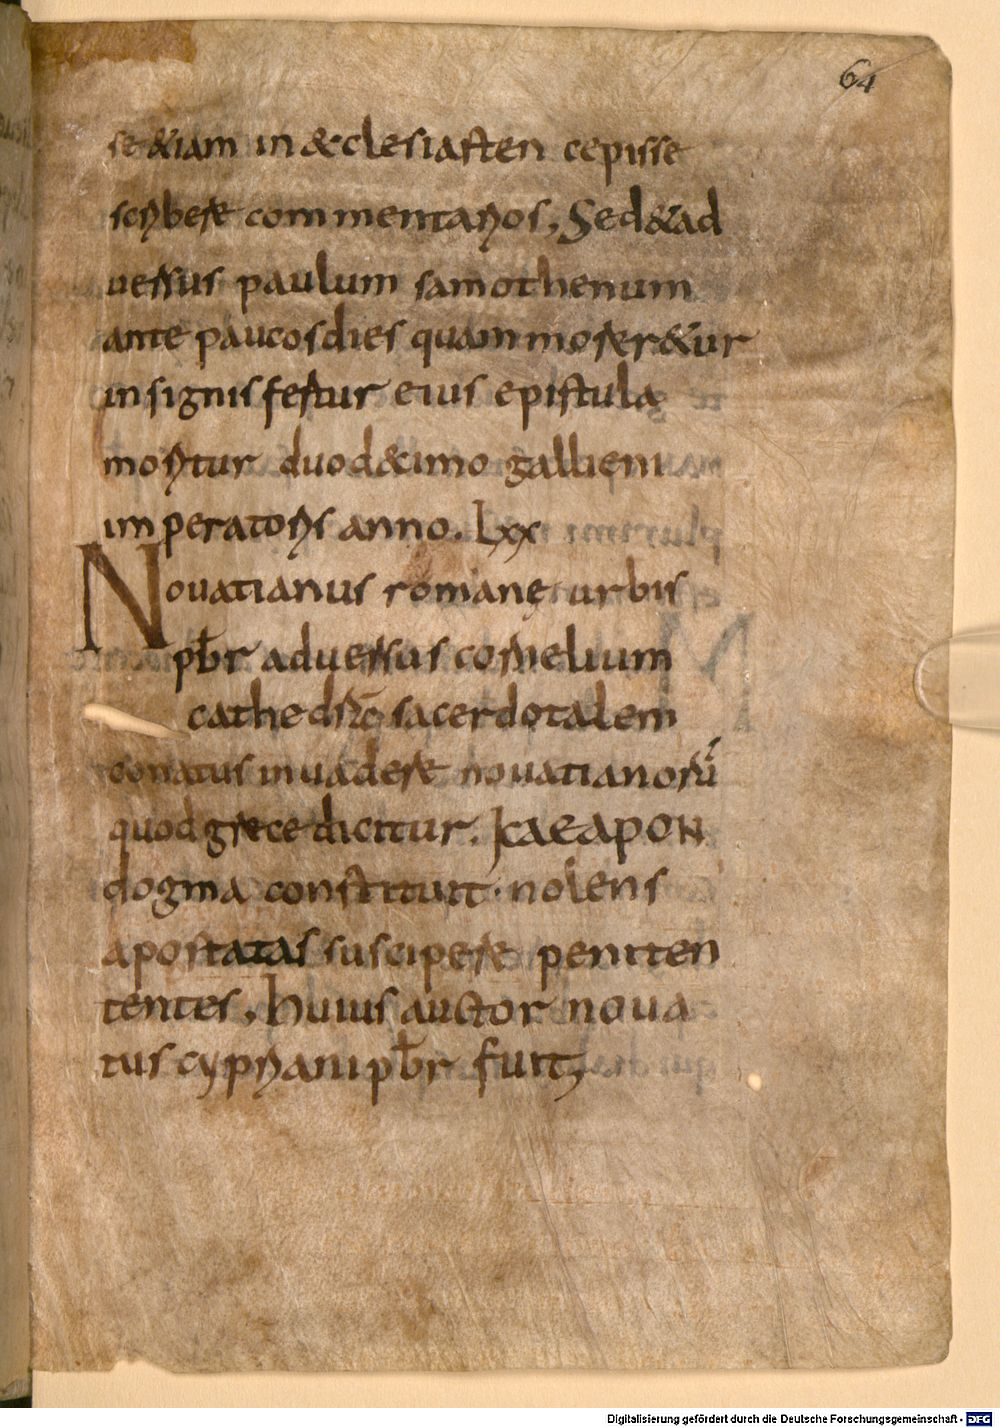 64
se &iam in &clesiasten cepisse
scribere commentarios, Sed & ad
uersus paulum samothenum
ante paucos dies quam morer&ur
insignis fertur eius epistula
moritur duod&imo gallieni
imperatoris anno. Lxx
Nouatianus romanę urbis
pb̄r aduersus cornelium
cathedrā sacerdotalem
conatus inuadere nouatianorū
quod grece dicitur. KAEAPON
dogma constituit. nolens
apostatas suscipere peniten
tentes, huius auctor noua
tus cypriani pb̄r fuit,
Digitalisierung gefördert durch die Deutsche Forschungsgemeinschaft - DFG